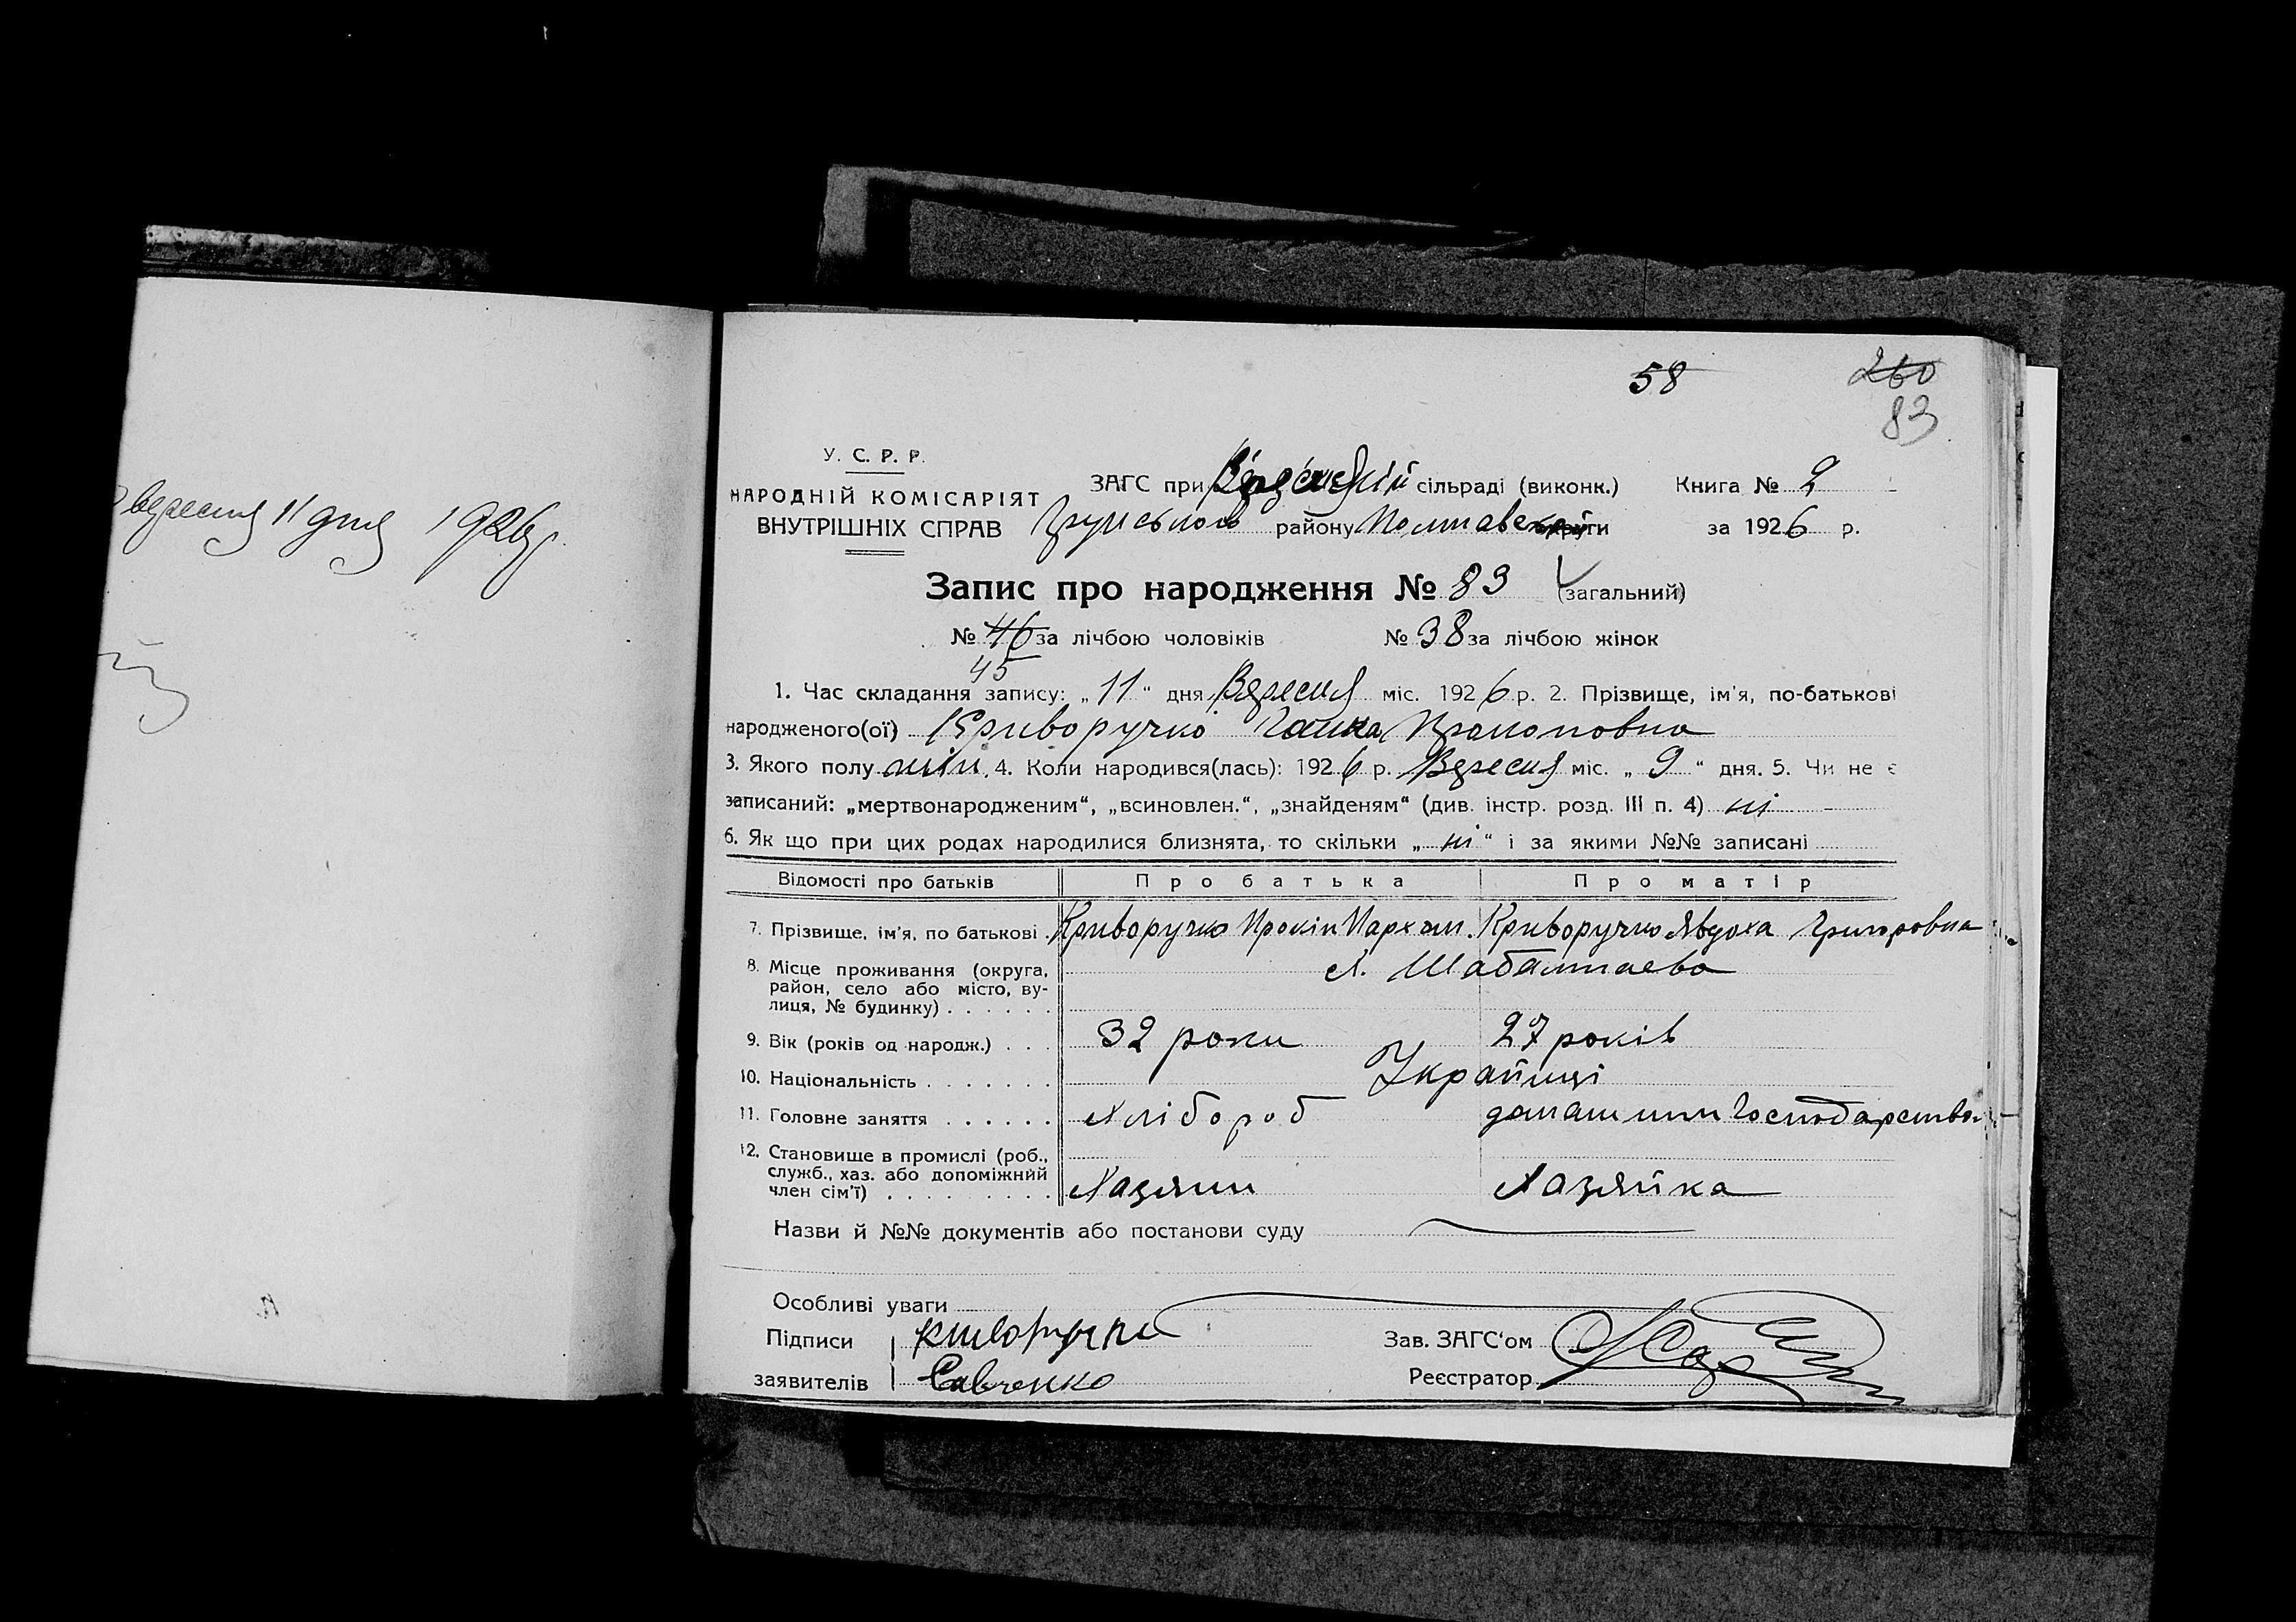 58
260
83
У. С. Р. Р.
НАРОДНІЙ КОМІСАРІЯТ
ВНУТРІШНІХ СПРАВ
ЗАГС при сільраді (виконк.) Книга № 2
Грунського району Полтавськ округи за 1926 р.
вересня 11 дня 1926 р.
Запис про народження № 83 (загальний)
№ 46 за лічбою чоловіків № 38 за лічбою жінок
45
1. Час складання запису: „ 11 “ дня Вересня міс. 1926 р. 2. Прізвище, ім'я, по-батькові
народженого(ої) Криворучко Ганна Прокоповна
3. Якого полу жін. 4. Коли народився(лась): 1926 р. Вересня міс. „ 9 “ дня. 5. Чи не є
записаний: „мертвонародженим“, „всиновлен.“, „знайденям“ (див. інстр. розд. III п. 4) ні
6. Як що при цих родах народилися близнята, то скільки „ ні “ і за якими №№ записані
Відомості про батьків Про батька Про матір
7. Прізвище, ім'я, по батькові . Криворучко Прокіп Пархом. Криворучко Явдоха Григоровна
8. Місце проживання (округа, район, село або місто, ву-
лиця, № будинку) . . . . . .
9. Вік (років од народж.) . . . 32 роки 27 років
10. Національність . . . . . . . Українці
11. Головне заняття . . . . . . Хлібороб домашним господарством
12. Становище в промислі (роб.,
служб., хаз. або допоміжний
член сім'ї) . . . . . . . . . Хазяин Хазяйка
Назви й №№ документів або постанови суду
Особливі уваги
Підписи Криворучко Зав. ЗАГС'ом
заявителів Савченко Реєстратор